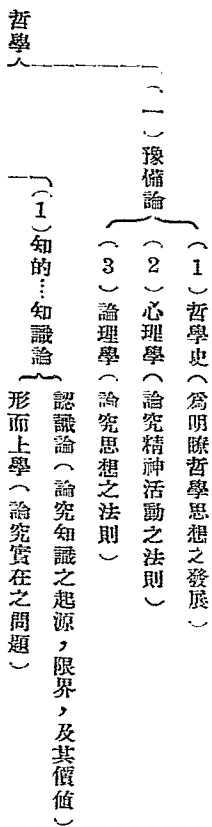 哲學
（一）豫備論
（1）哲學史（爲明瞭哲學思想之發展）
（2）心理學（論究精神活動之法則）
（3）論理學（論究思想之法則）
（1）知的…知識論
認識論（論究知識之起源，限界，及其價値）
形而上學（論究實在之問題）